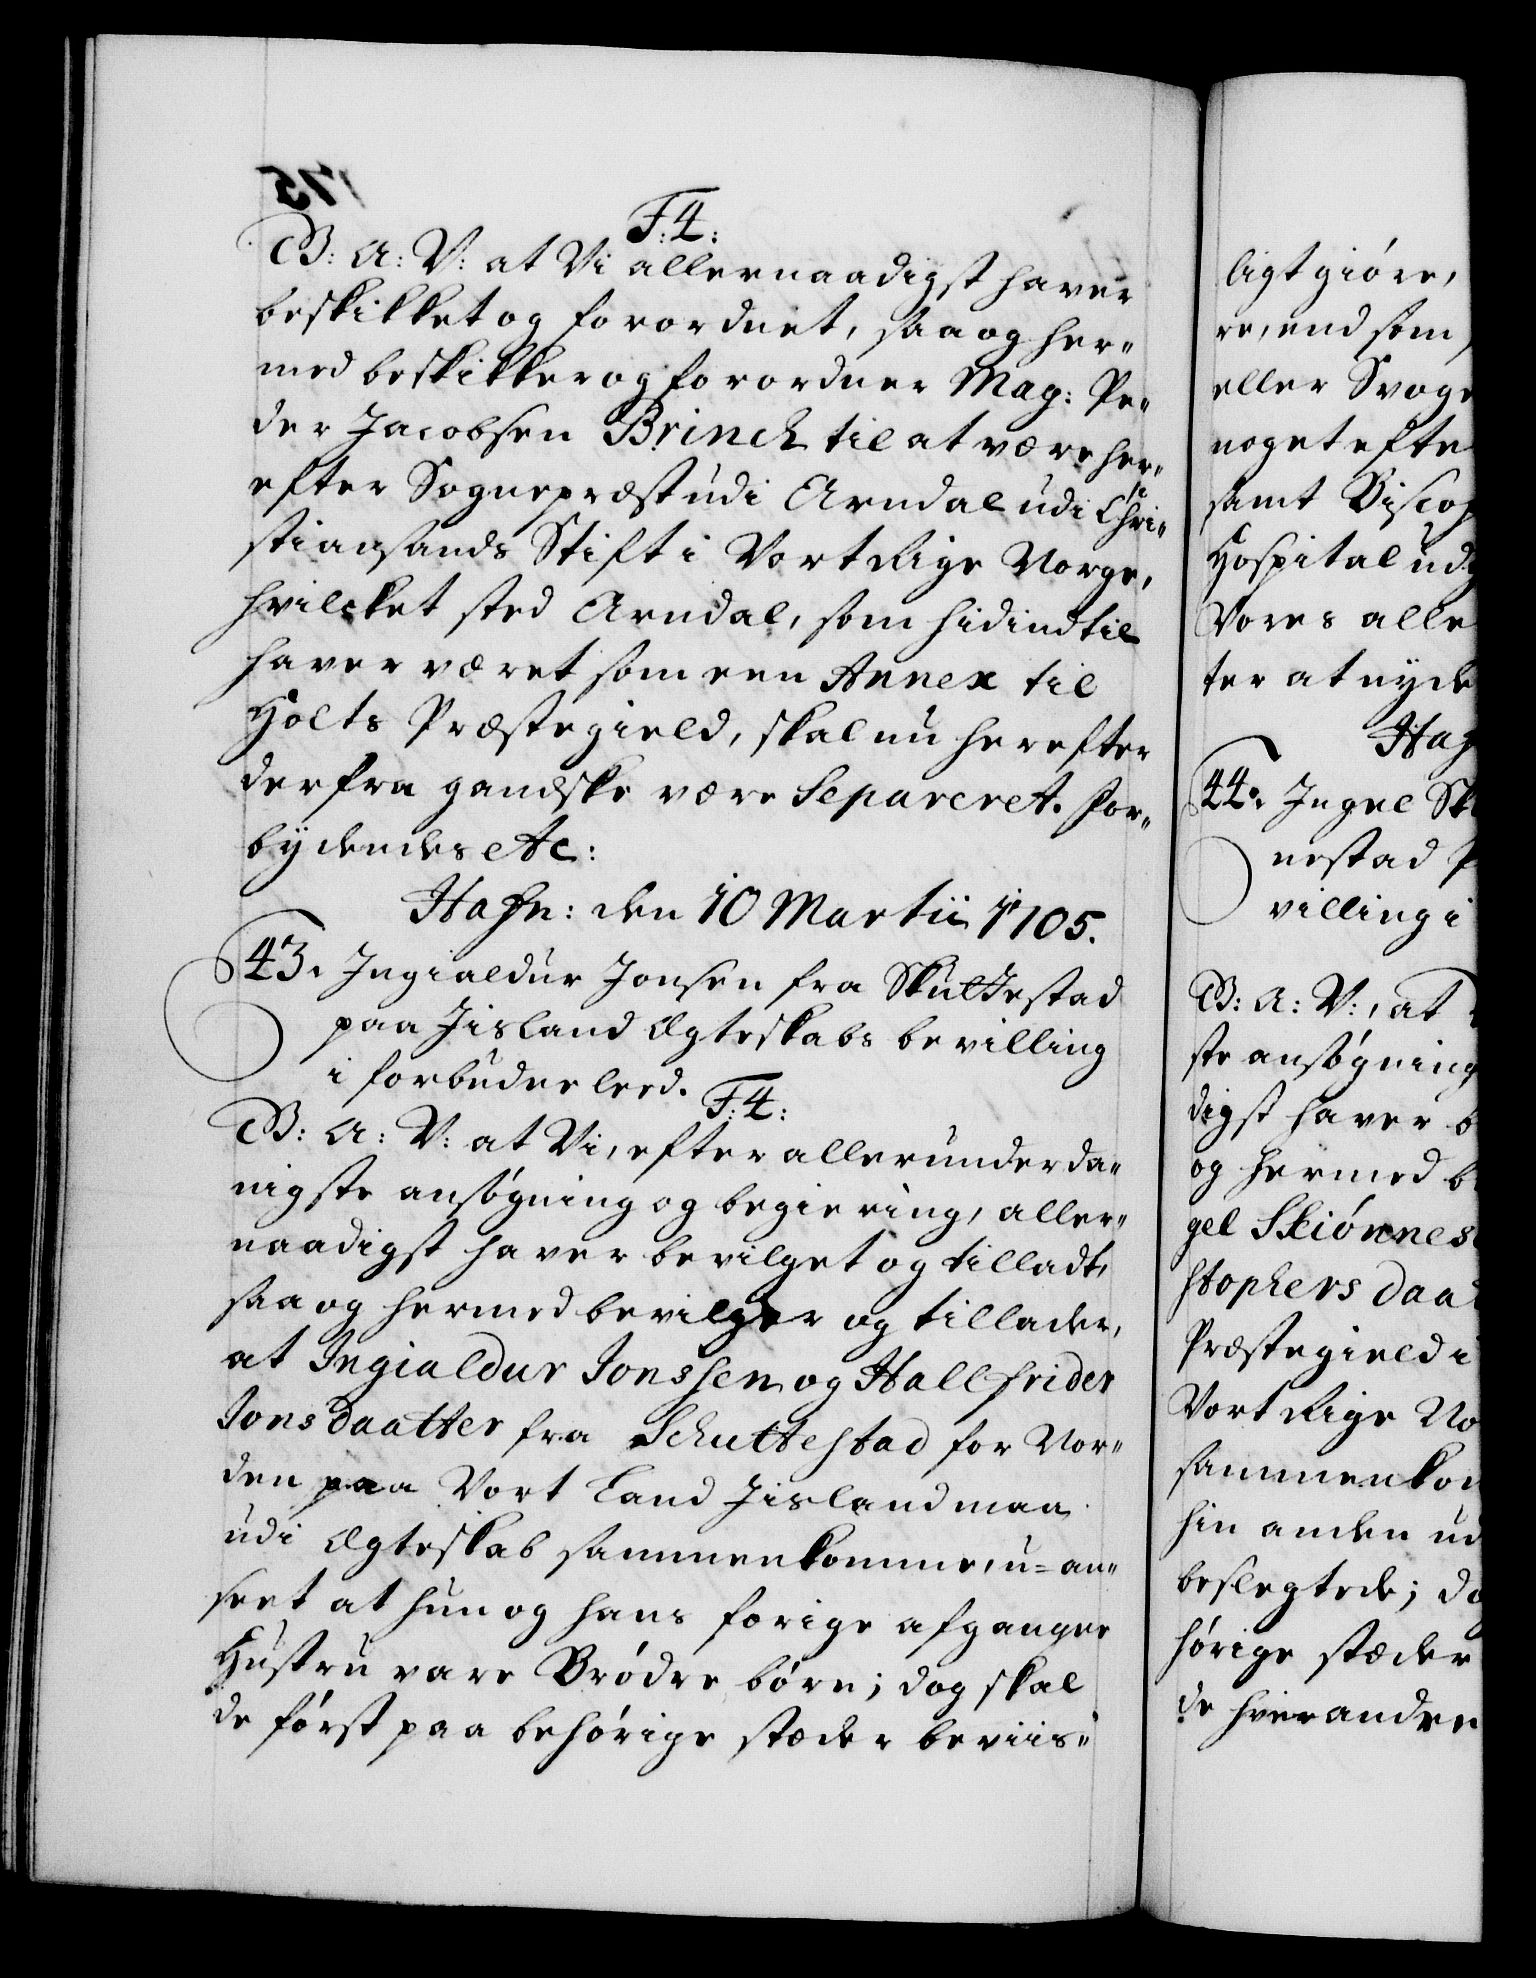 F:4:
G: A: V: at Vi allernaadigst haver
beskikket og forordnet, saa og her„
med beskikker og forordner Mag: Pe„
der Jacobsen Brinch til at være her„
efter Sognepræst udi Arndal udi Chri„
stiansands Stift i Vort Rige Norge,
hvilcket sted Arndal, som hidindtil
haver været som een Annex til
Holts Præstegield, skal nu herefter
derfra gandske være Separeret. For„
bydendes etc:
Hafn: den 10 Martii 1705.
43. Ingialdur Jonsen fra Skuttestad
paa Jisland Ægteskabs bevilling
i forbudne leed.
F:4:
G: A: V: at Vi, efter allerunderda„
nigste ansøgning og begiering, aller„
naadigst haver bevilget og tilladt,
saa og hermed bevilger og tillader,
at Ingialdur Jonssen og Hallfrider
Jonsdaatter fra Schuttestad for Nor„
den paa Vort Land Jisland maa
udi Ægteskab sammenkomme, u=an„
seet at hun og hans forige afgangne
Hustru vare Brødre børn; dog skal
de først paa behørige stæder beviis„
ligt giøre,
re, end som
eller Svoge
noget efte
samt Biscop
Hospital udg
Vores alle
ter at nyde
Haf
44. Ingel Sk
nestad P
villing i
G: A: V:, at
ste ansøgning
digst haver b
og hermed be
gel Skiønnes
stophers daa
Præstegield i
Vort Rige No
sammenkom
hin anden ud
beslegtede; do
hørige stæder
de hverandre